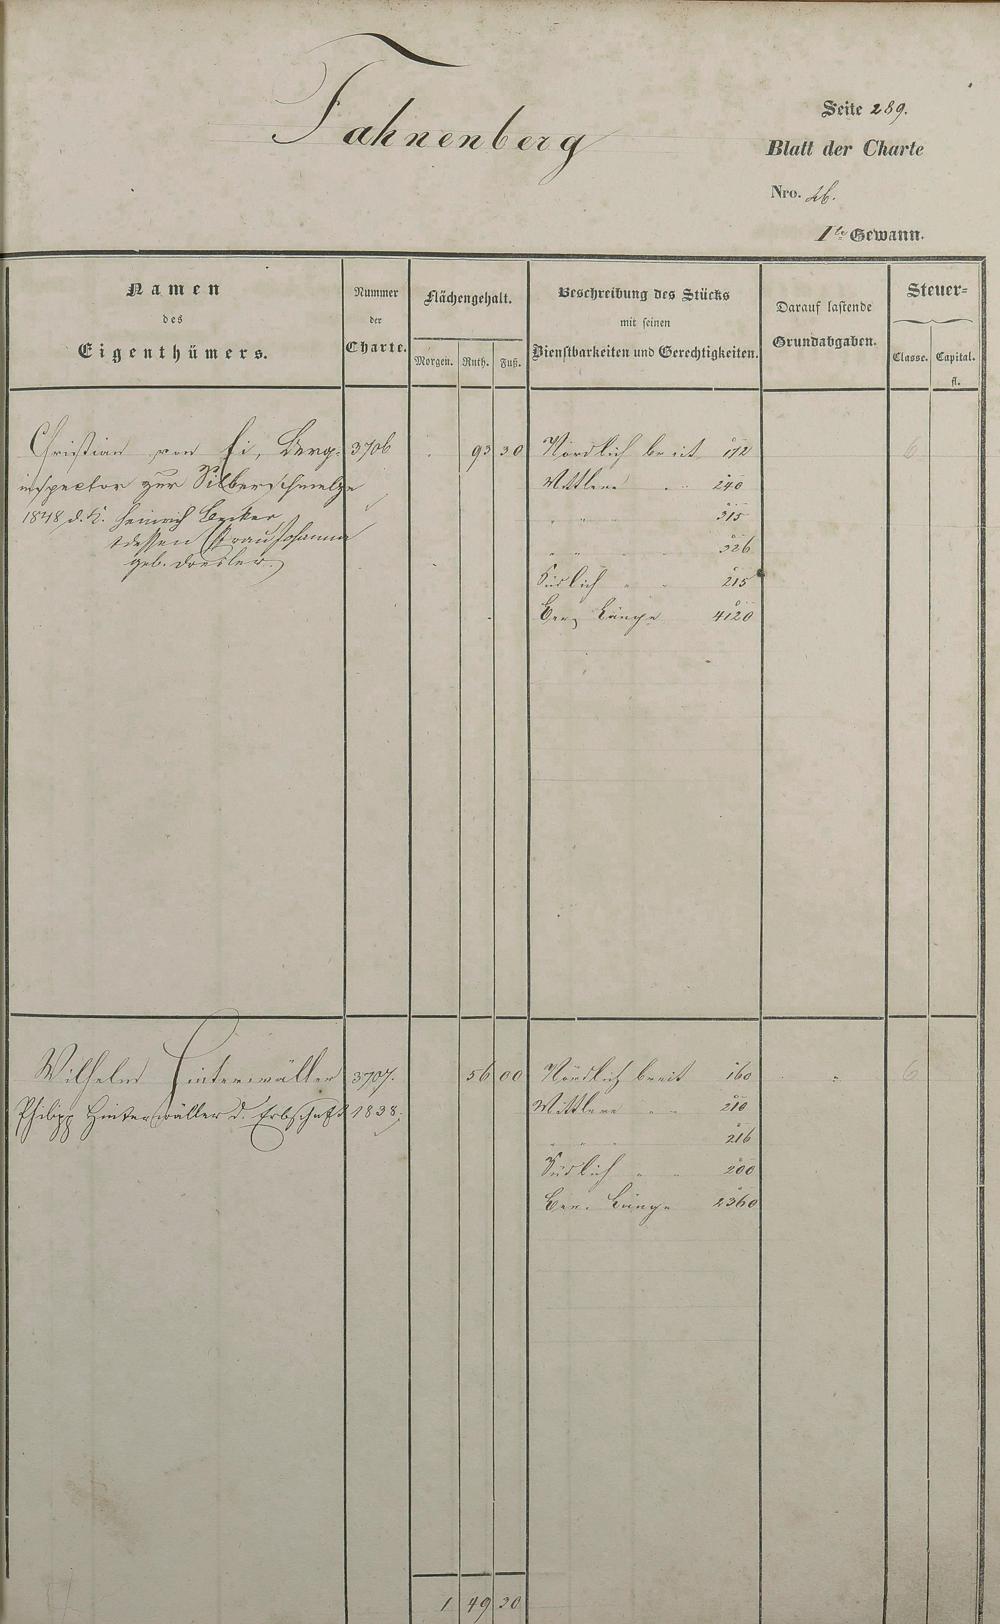 Fahnenberg
Seite 289.
Blatt der Charte
Nro. 26.
1te Gewann.
Namen
des
Eigenthümers.
Nummer
der
Charte.
Flächengehalt.
Morgen. Ruth. Fuß.
Beschreibung des Stücks
mit seinen
Dienstbarkeiten und Gerechtigkeiten.
Darauf lastende
Grundabgaben.
Steuer-
Classe. Capital.
fl.
Christian von Ei, Berg- 3706 93 30 Nördlich breit 172 6
inspector zur Silberschmelze Mittlere " 240
1848 d. K. Heinrich Becker " " 315
+ dessen Frau Johanna " " 326
geb. Dresler. Südlich " " 215
Ger. Länge 4120
Wilhelm Hinterwäller 3707. 56 00 Nördlich breit 160 6
Philipp Hinterwäller d. Erbschaft 1838. Mittlere " " 210
" " 216
Südlich " " 200
Ger. Länge 2360
1 49 30